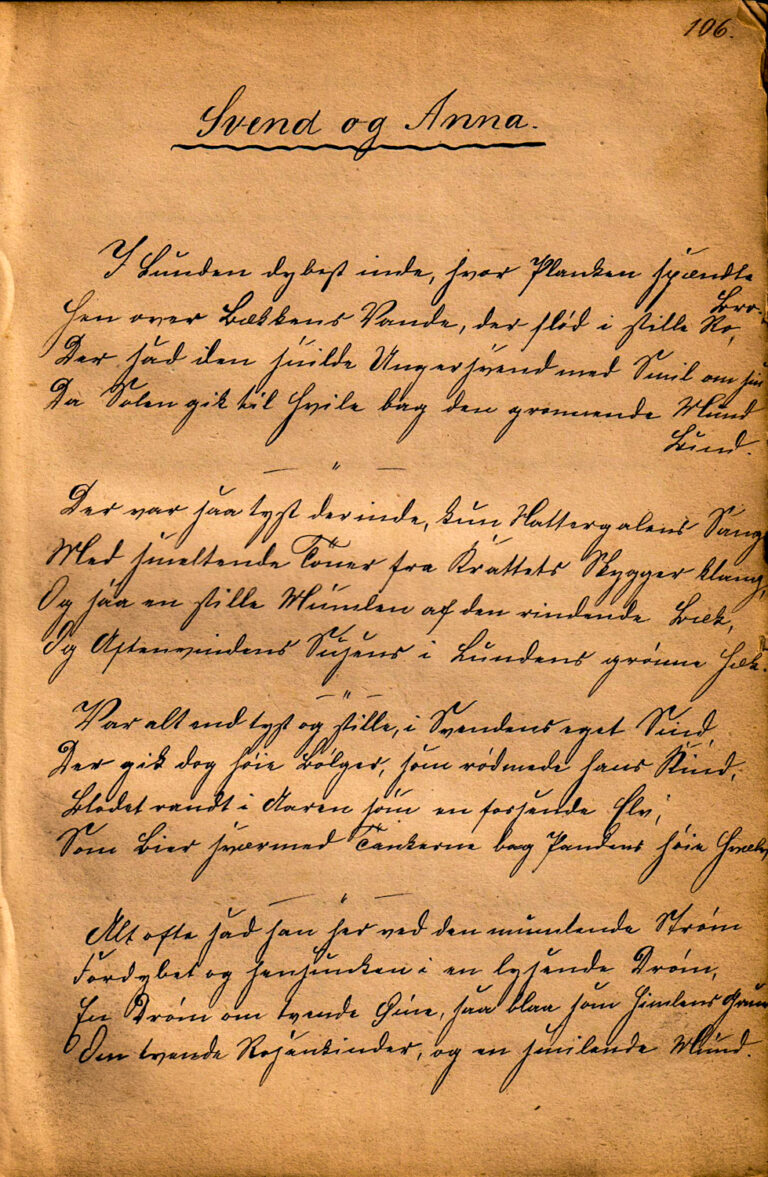 106.
Svend og Anna.
I Lunden dybest inde, hvor Planken spændte
Bro
Hen over Bækkens Vande, der flød i stille Ro,
Der sad den milde Ungersvend med Smil om sin
Da Solen gik til Hvile bag den grønnende Mund
Lund.
— " —
Der var saa tyst derinde, kun Nattergalens Sang
Med smeltende Töner fra Krattets Skygger klang,
Og saa en stille Mumlen af den rindende Bæk,
Og Aftenvindens Susens i Lundens grønne Hæk.
— " —
Var alt end tyst og stille, i Svendens eget Sind,
Der gik dog høie Bølger, som rødmede hans Kind,
Blodet randt i Aaren som en fossende Elv,
Som Bier sværmed Tankerne bag Pandens høie Hvælv
— " —
Alt ofte sad han her ved den mumlende Strøm
Fordybet og hensunken i en lysende Drøm,
En Drøm om tvende Øine, saa blaa som Himlens Grun
Om tvende Rosenkinder, og en smilende Mund.